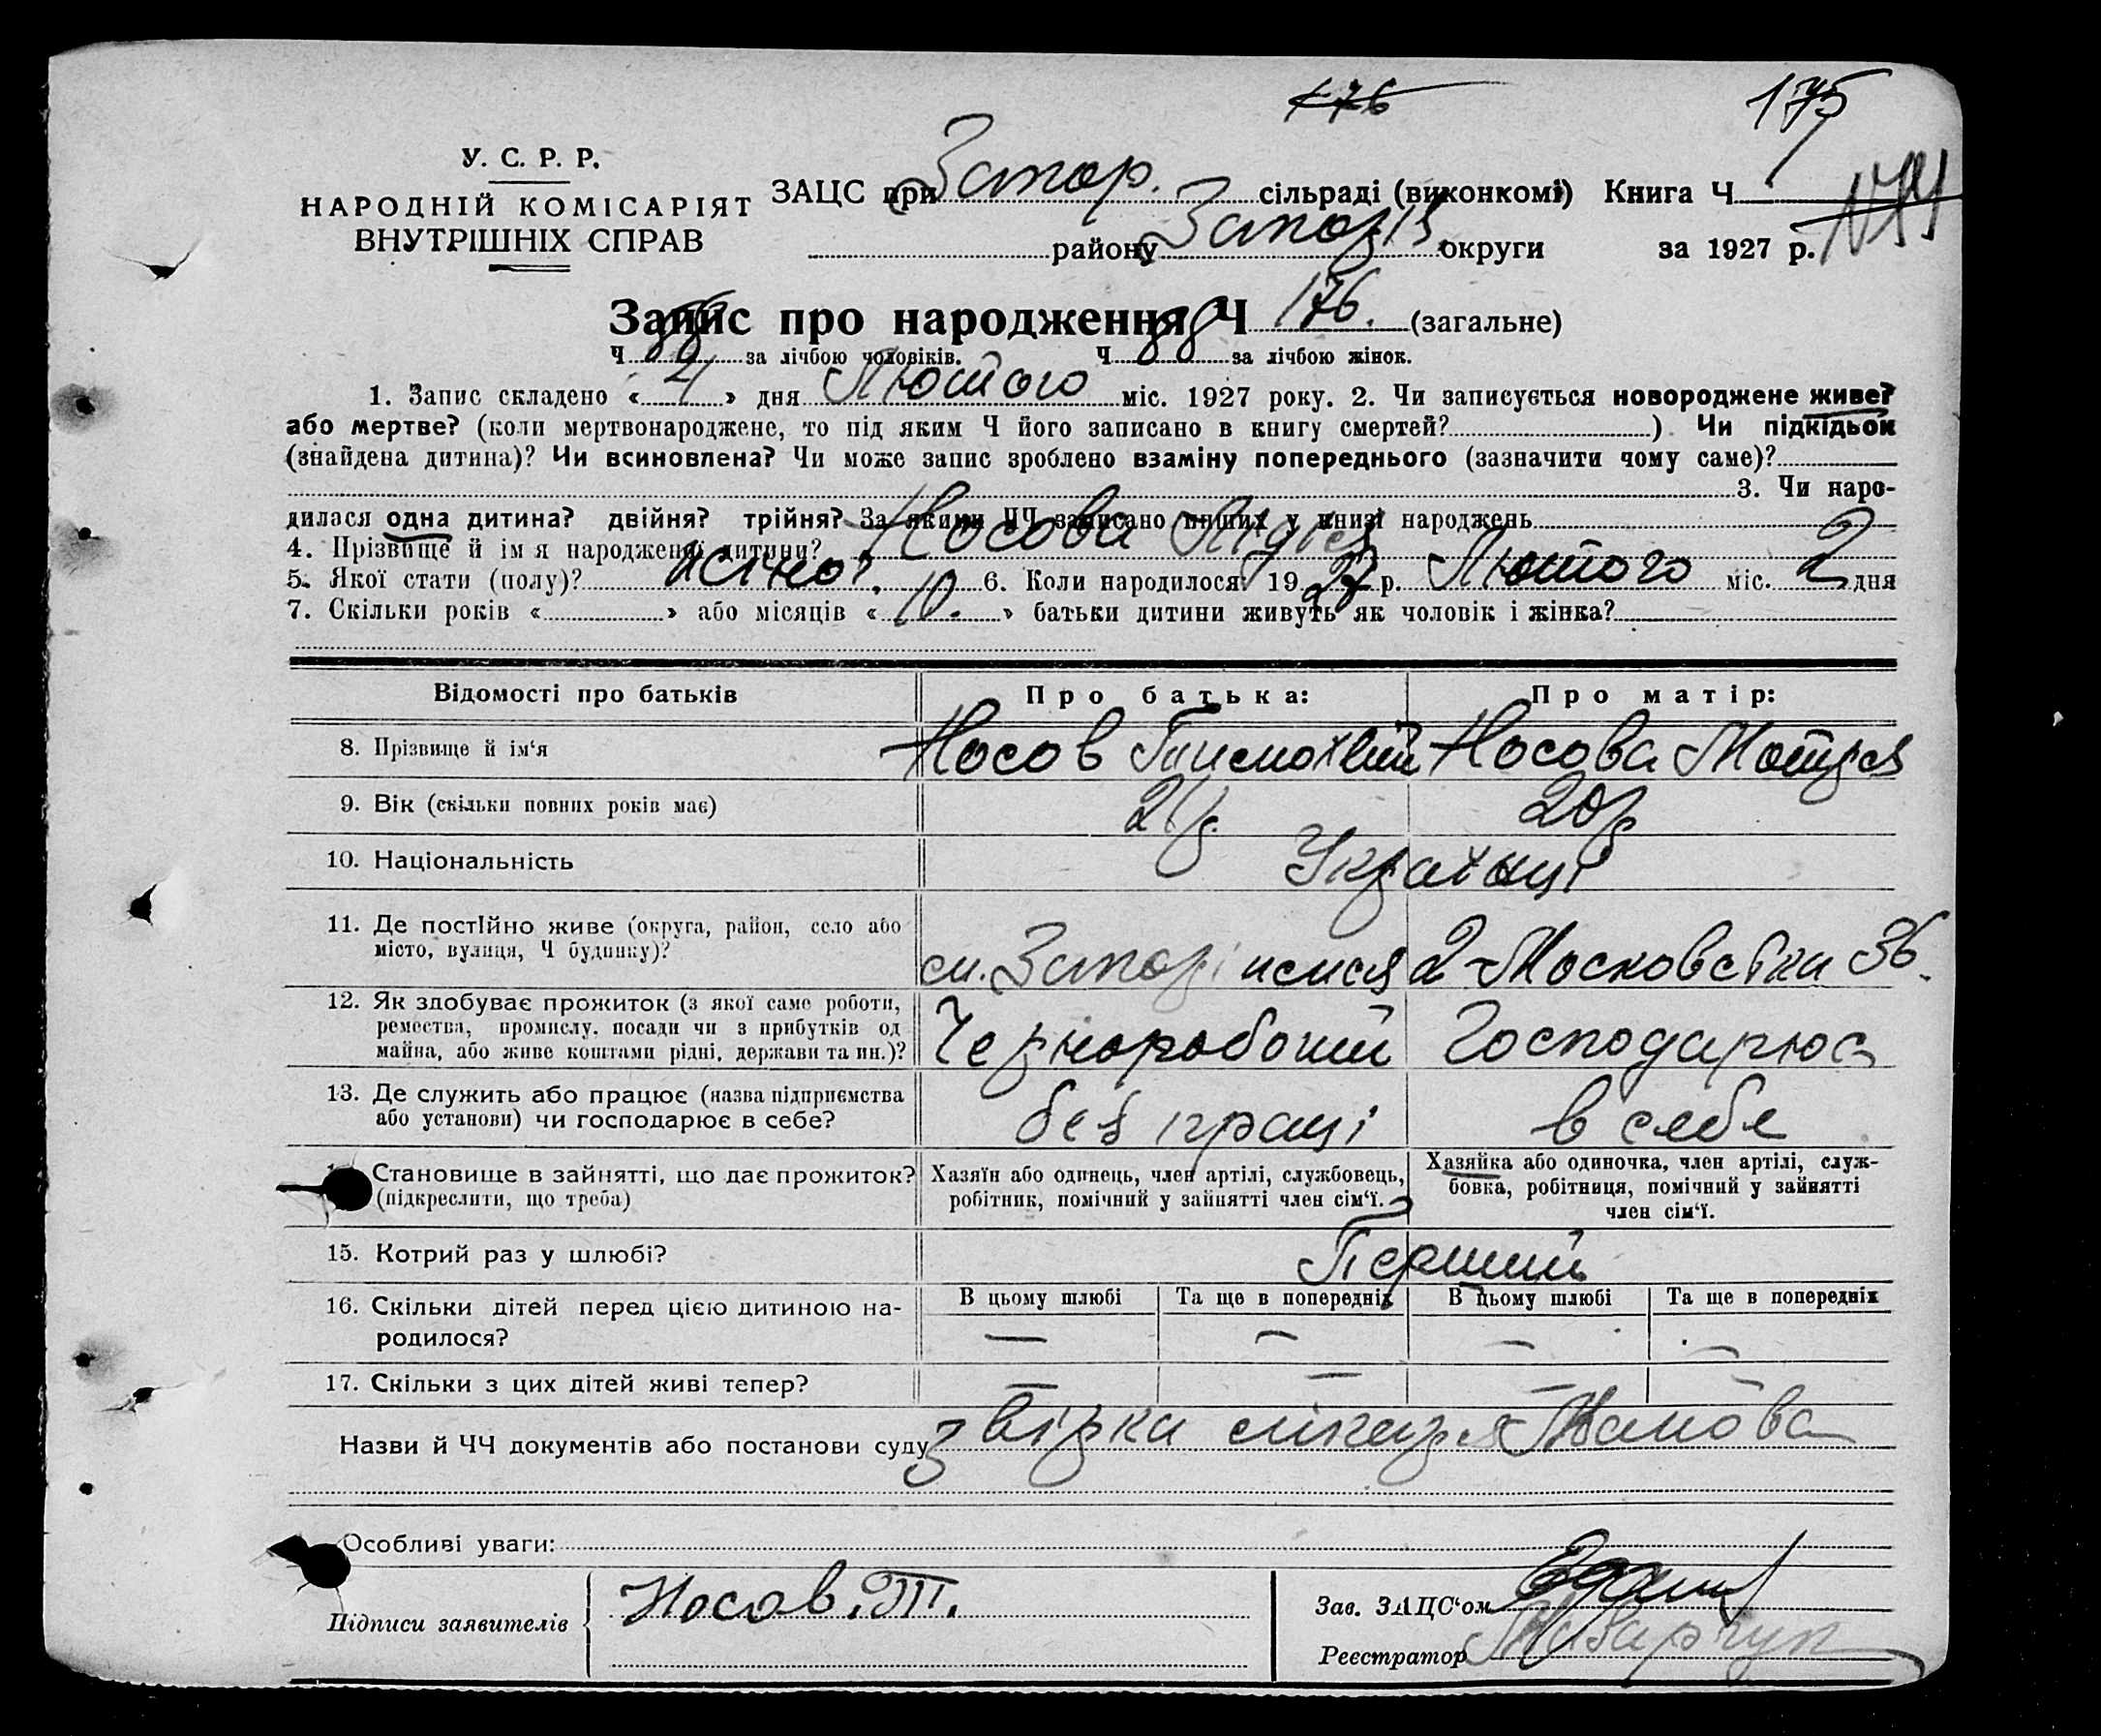 176
175
У. С. Р. Р.
НАРОДНІЙ КОМІСАРІЯТ
ВНУТРІШНІХ СПРАВ
ЗАЦС при Запор. сільраді (виконкомі) Книга Ч
району Запоріз. округи за 1927 р.
Запис про народження Ч 176. (загальне)
Ч за лічбою чоловіків. Ч 88 за лічбою жінок.
1. Запис складено « 4 » дня Лютого міс. 1927 року. 2. Чи записується новороджене живе?
або мертве? (коли мертвонароджене, то під яким Ч його записано в книгу смертей? ) Чи підкідьок
(знайдена дитина)? Чи всиновлена? Чи може запис зроблено взаміну попереднього (зазначити чому саме)?
3. Чи наро-
дилася одна дитина? двійня? трійня? За якими ЧЧ записано инших у книзі народжень
4. Прізвище й ім я народженої дитини? Носова Лідія
5. Якої стати (полу)? жіно?. 6. Коли народилося? 19 27 р. Лютого міс. 2 дня
7. Скільки років « » або місяців « 10. » батьки дитини живуть як чоловік і жінка?
Відомості про батьків Про батька: Про матір:
8. Прізвище й ім‘я Носов Тимохвій Носова Мотря
9. Вік (скільки повних років має) 21р. 20р
10. Національність Українці
11. Де постІйно живе (округа, район, село або
місто, вулиця, Ч будинку)? м. Запоріжжя 2 Московська 36.
12. Як здобуває прожиток (з якої саме роботи,
ремества, промислу, посади чи з прибутків од
майна, або живе коштами рідні, держави та ин.)? Черноробочий Господарює
13. Де служить або працює (назва підприємства
або установи) чи господарює в себе? без праці в себе
Становище в зайнятті, що дає прожиток?
(підкреслити, що треба)
Хазяїн або одинець, член артілі, службовець,
робітник, помічний у зайнятті член сім‘ї.
Хазяйка або одиночка, член артілі, служ-
бовка, робітниця, помічний у зайнятті
член сім‘ї.
15. Котрий раз у шлюбі? Перший
16. Скільки дітей перед цією дитиною на-
родилося?
В цьому шлюбі Та ще в попередніх В цьому шлюбі Та ще в попередніх
— — — —
17. Скільки з цих дітей живі тепер? — — — —
Назви й ЧЧ документів або постанови суду Звірка лікаря
Особливі уваги:
Підписи заявителів Носов. Т.
Зав. ЗАЦС‘ом
Реєстратор